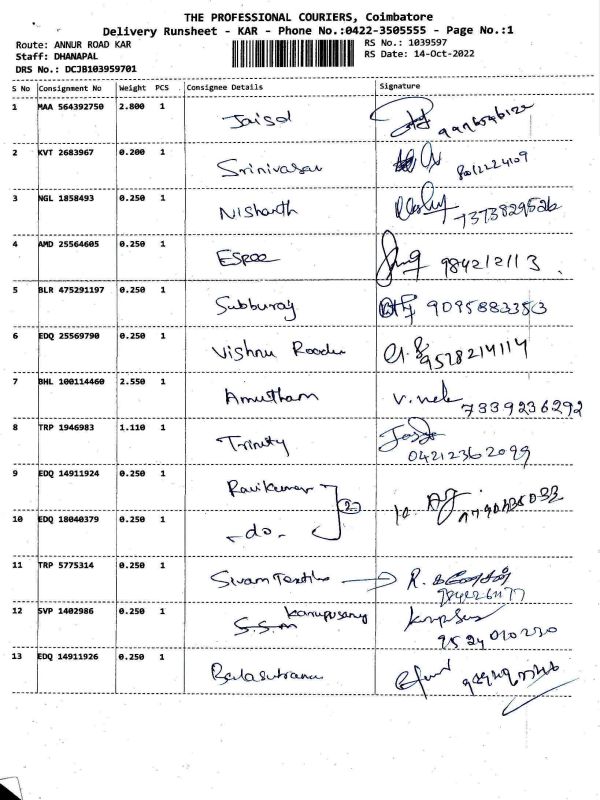 THE PROFESSIONAL COURIERS, Coimbatore
Delivery Runsheet - KAR - Phone No.:0422-3505555 - Page No.:1
Route: ANNUR ROAD KAR RS No.: 1039597
Staff: DHANAPAL RS Date: 14-Oct-2022
DRS No.: DCJB103959701
S No Consignment No Weight PCS Consignee Details Signature
1 MAA 564392750 2.800 1 Jaisol
2 KVT 2683967 0.200 1 Srinivasan 8012224109
3 NGL 1858493 0.250 1 Nishanth 7373829526
4 AMD 25564605 0.250 1 984212113
5 BLR 475291197 0.250 1 Subburaj 9095883353
6 EDQ 25569790 0.250 1 Vishnu 9528214114
7 BHL 100114460 2.550 1 Amutham 7339236292
8 TRP 1946983 1.110 1 Trinity 04212362099
9 EDQ 14911924 0.250 1 Ravikumar
10 EDQ 18040379 0.250 1 -do- 2
11 TRP 5775314 0.250 1 Sivam Textiles R.
12 SVP 1402986 0.250 1 S.S.M Karuppusamy 9524010230
13 EDQ 14911926 0.250 1